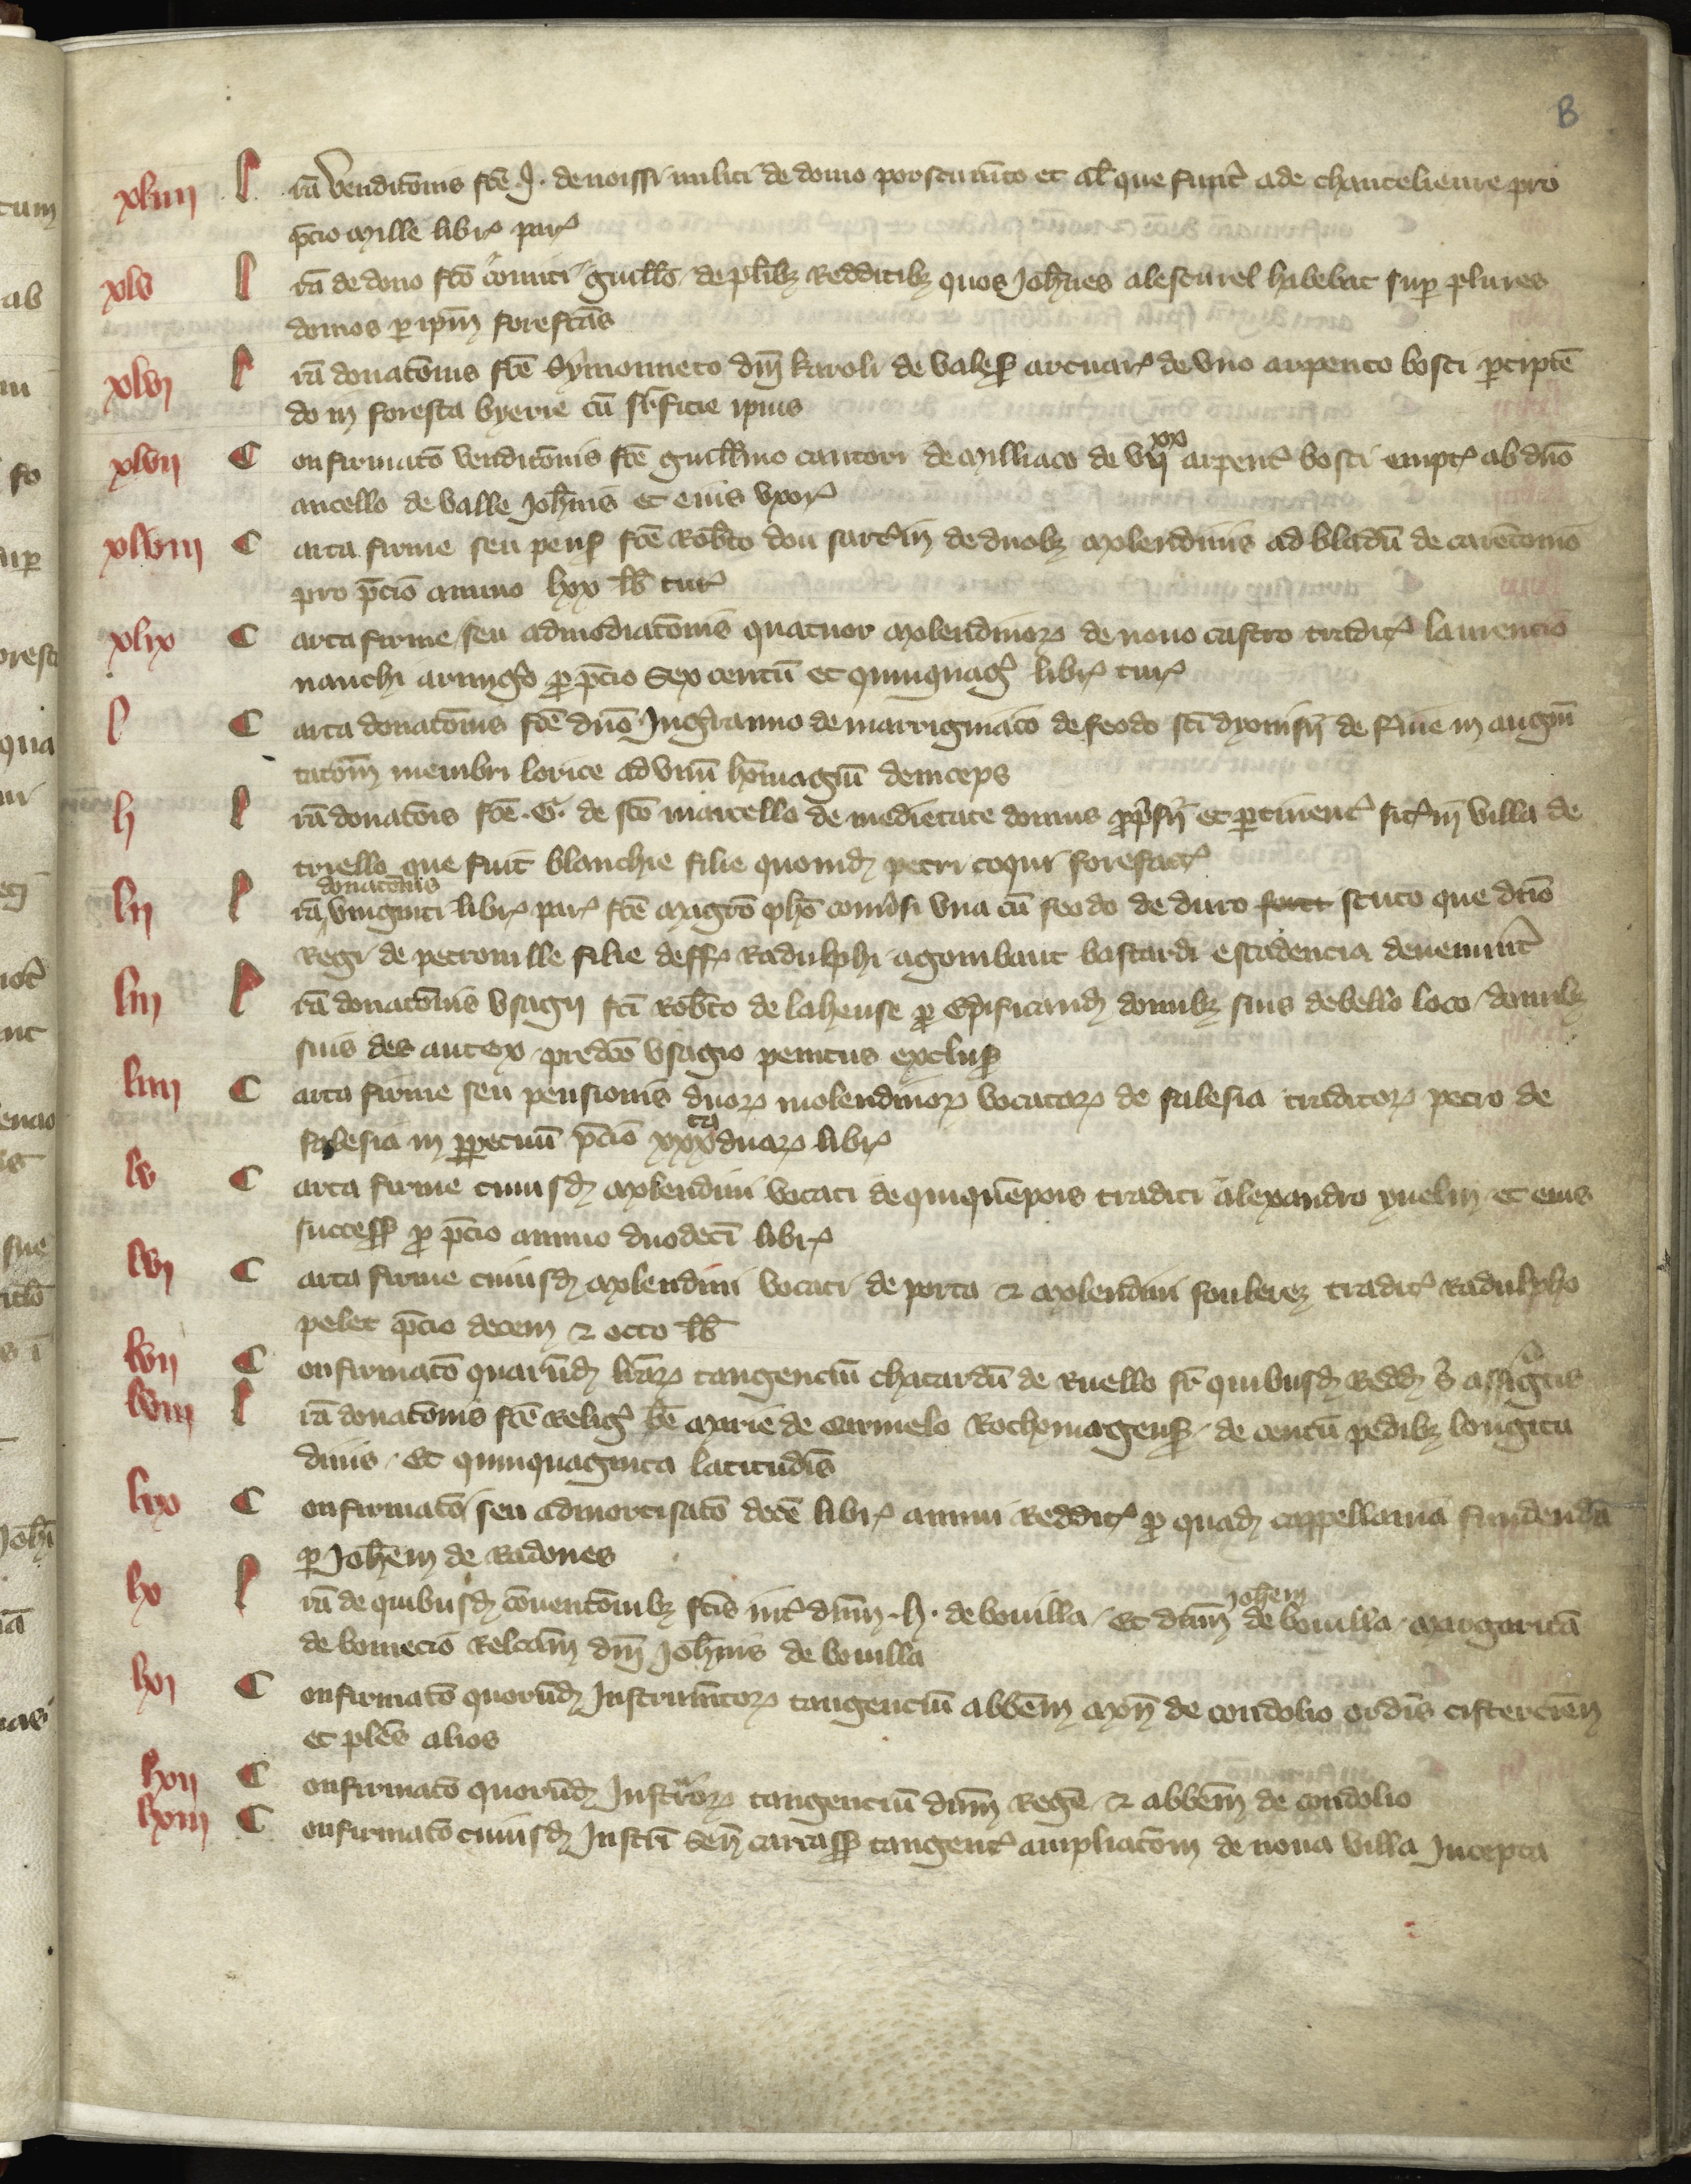 B
xliiii l rā venditōnis fcē J. de noissi militi de domo porstūnto et al' que fuert̄ ade chancelieure pro
p̄cio mille libr̄ par̄
xlv l rā de dono fcō comiti guill̄o de pl̄ibȝ redditibȝ quos Joh̄nes alescurel habebat sup plures
domos p ip̄m forefc̄as
xlvi l rā donatōnis fcē Symonneto dn̄i karoli de vales̄ arcuar̄ de uno arpento bosci p̄cipiē
do in foresta byerie cū sr̄ficie ipius
xlvii C onfirmatō venditōnis fcē guill̄mo cantori de milliaco de vii xx arpent̄ bosci empt̄ ab dn̄o
ancello de valle Joh̄nis et eius uxor̄
xlviii C arta firme seu pens̄ fcē Rob̄to dou sart'in de duobȝ molendinis ad bladū de carētonio
pro p̄cio annuo lxx lb̄ tur̄
xlix C arta firme seu admodiatōnis quatuor molendinorꝝ de nouo castro tradit̄ laurencio
nanchi armiḡo p p̄cio Sex centū et quinquaḡ libr̄ tur̄
l C arta donatōnis fcē dn̄o Jnḡranno de marrigniaco de feodo sc̄i dyonisii de sr̄ine in augm̄
tatōm̄ membri lorice ad unū hōmagiū deinceps
li l rā donatōis fcē .G. de sc̄o marcello de medietate domus pp̄sii et p̄tinent̄ sit̄ in villa de
tryello que fuit blanchie filie quondꝫ petri coqui forefact̄
lii l rā donatōnis viuginti libr̄ par̄ fcē maḡro ph̄o comūsi una cū feodo de duro fortt scuto que dn̄o
Regi de petronille filie deff̄ Radulphi agombaut bastardi escadencia deuenūnt̄
liii l rā donatōnis usagii fc̄i Rob̄to de laheuse p edificandꝫ domibȝ suis de bello loco domibȝ
suis des autex predc̄o usagio penitus exclus̄
liiii C arta firme seu pensionis duorꝝ molendinorꝝ vocatorꝝ de falesia traditorꝝ petro de
falesia in ppetuū p̄cio xxx ta duarꝝ libr̄
lv C arta firme cuiusdꝫ molendini vocati de quiquēpois traditi alexandro yuelin et eius
success̄ p p̄cio annuo duodecī libr̄
lvi C arta firme cuiusdꝫ molendini vocati de porta & molendini souberez tradit̄ Radulpho
pelet p̄cio decem & octo lb̄
lvii C onfirmatō quarūdꝫ lr̄arꝝ tangenciū chatardū de Ruello sr̄ quibusdꝫ Reddꝫ s' assiḡtis
lviii l rā donatōnis fcē Reliḡ bē marie de carmelo Rothomagens̄ de centū pedibȝ longitu
dinis et quinquaginta latitudīs
lix C onfirmatō seu admortisatō decē libr̄ annui Reddit̄ p quadꝫ cappellania fundendā
p Joh̄em de Radones
lx l rā de quibusdꝫ cōuentōnibȝ fcīs int̄ dn̄m .h. de bouilla et dn̄m Joh̄em de bouilla margaritā
de bomecio Relc̄am dn̄i Joh̄nis de bouilla
lxi C onfirmatō quorūdꝫ Instrumt̄orꝝ tangenciū abbēm mōn de condolio ordīs cisterciēn
et pl̄es alios
lxii C onfirmatō quorūdꝫ Instr̄orꝝ tangenciū dn̄m Regē & abbēm de condolio
lxiii C onfirmatō cuiusdꝫ Instr̄i Sen̄ carcass̄ tangent̄ ampliatōm de noua villa Incepta